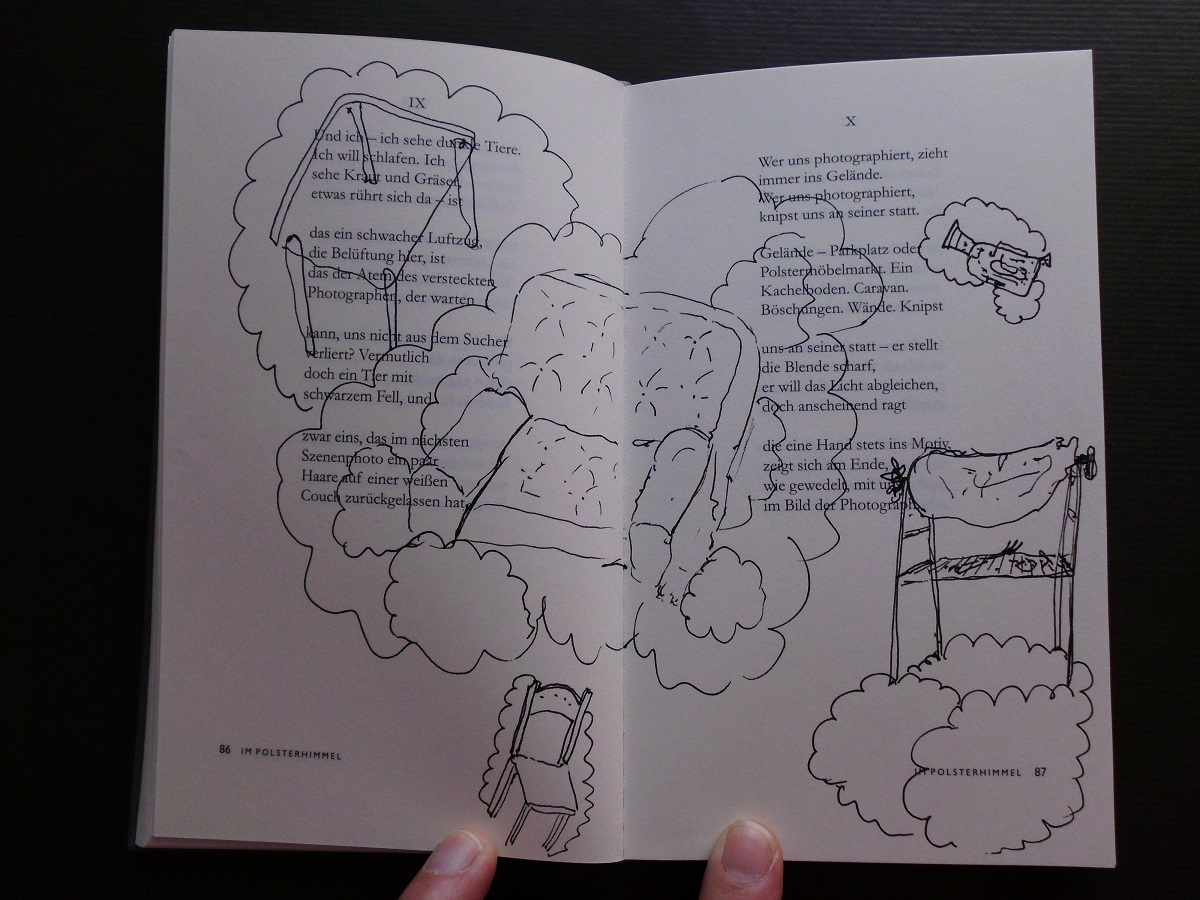 IX
Und ich – ich sehe dunkle Tiere.
Ich will schlafen. Ich
sehe Kraut und Gräser,
etwas rührt sich da – ist
das ein schwacher Luftzug,
die Belüftung hier, ist
das der Atem des versteckten
Photographen, der warten
kann, uns nicht aus dem Sucher
verliert? Vermutlich
doch ein Tier mit
schwarzem Fell, und
zwar eins, das im nächsten
Szenenphoto ein paar
Haare auf einer weißen
Couch zurückgelassen hat.
86 IM POLSTERHIMMEL
X
Wer uns photographiert, zieht
immer ins Gelände.
Wer uns photographiert,
knipst uns an seiner statt.
Gelände – Parkplatz oder
Polstermöbelmarkt. Ein
Kachelboden. Caravan.
Böschungen. Wände. Knipst
uns an seiner statt – er stellt
die Blende scharf,
er will das Licht abgleichen,
doch anscheinend ragt
die eine Hand stets ins Motiv,
zeigt sich am Ende,
wie gewedelt, mit
im Bild der
IM POLSTERHIMMEL 87